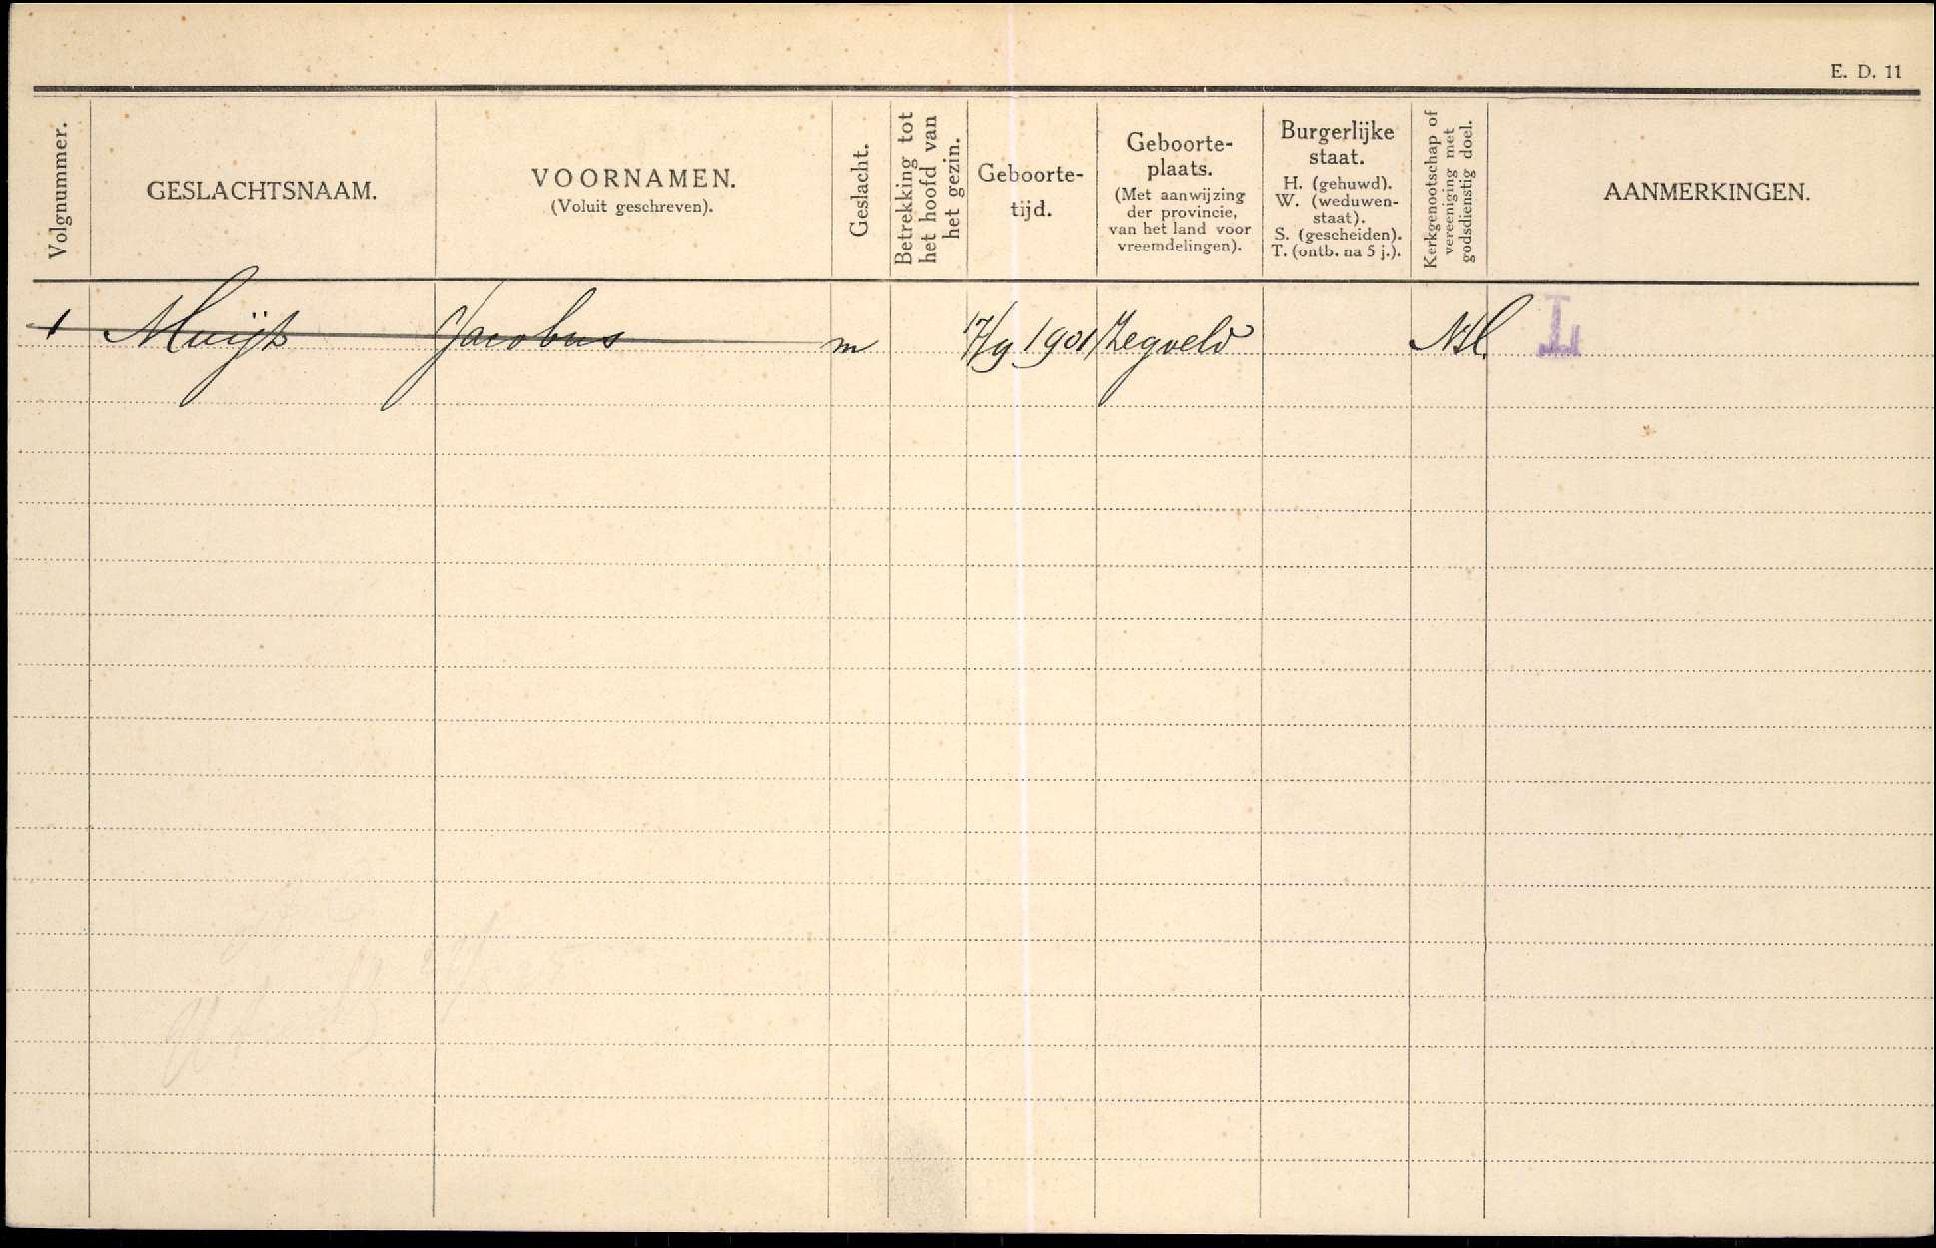 E. D. 11
Volgnummer.
GESLACHTSNAAM.
VOORNAMEN.
(Voluit geschreven).
Geslacht.
Betrekking tot
het hoofd van
het gezin.
Geboorte-
tijd.
Geboorte-
plaats.
(Met aanwijzing
der provincie,
van het land voor
vreemdelingen).
Burgerlijke
staat.
H. (gehuwd).
W. (weduwen-
staat).
S. (gescheiden).
T. (ontb. na 5 j.).
Kerkgenootschap of
vereeniging met
godsdienstig doel.
AANMERKINGEN.
1 Muijs Jacobus m 17/9 1901 Zegveld NH.